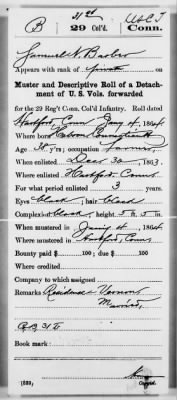 31st U S C T
B 29 Col'd. Conn.
Samuel N. Barber
Appears with rank of private on
Muster and Descriptive Roll of a Detach-
ment of U. S. Vols. forwarded
for the 29 Reg't Conn. Col'd Infantry. Roll dated
Hartford, Conn Jany 4, 1864.
Where born Hebron Connecticut
Age 30 y'rs; occupation farmer
When enlisted Dec 30, 1863.
Where enlisted Hartford, Conn
For what period enlisted 3 years.
Eyes black; hair black
Complexion black; height 5 ft. 5 in.
When mustered in Jany 4, 1864
Where mustered in Hartford, Conn
Bounty paid $ 100; due $ 100
Where credited
Company to which assigned
Remarks Residence Vernon
Married,
Co. B, 31 U
Book mark:
(339) Copyist.